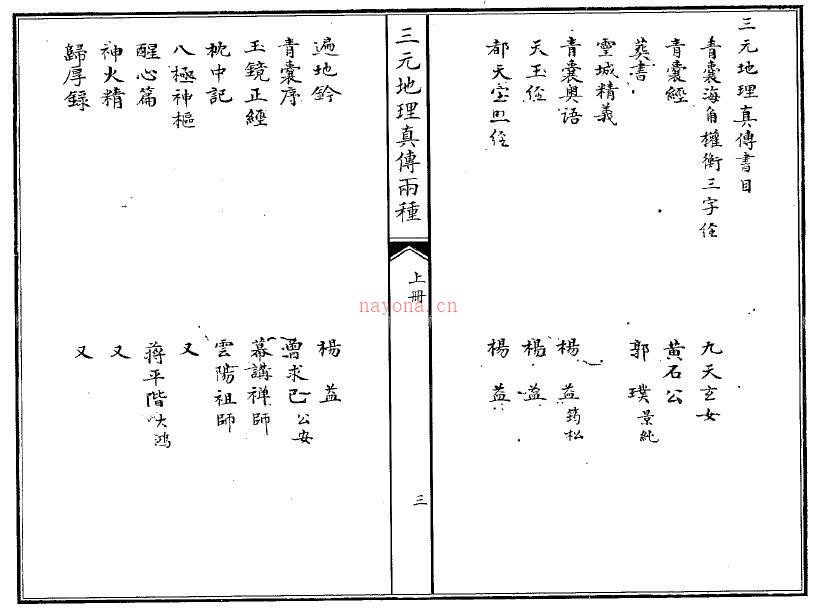 三元地理真傳書目
青囊海角權衡三字经 九天玄女
青囊經 黄石公
葬書 郭璞景純
靈城精義
青囊奥语 楊益筠松
天玉经 楊益
都天宝照经 楊益
三元地理真傳兩種
上冊
三
遍地鈐 楊益
青囊序 曾求己公安
玉鏡正經 幕講禅師
枕中記 雲陽祖師
八極神樞 又
醒心篇 蔣平階大鴻
神火精 又
歸厚錄 又
nayona.cn